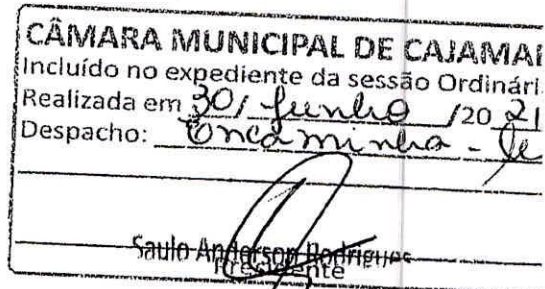 CÂMARA MUNICIPAL DE CAJAMAI
Incluído no expediente da sessão Ordinári
Realizada em 30/ Junho /20 21
Despacho: Encaminha - se
Saulo Anderson Rodrigues
Presidente